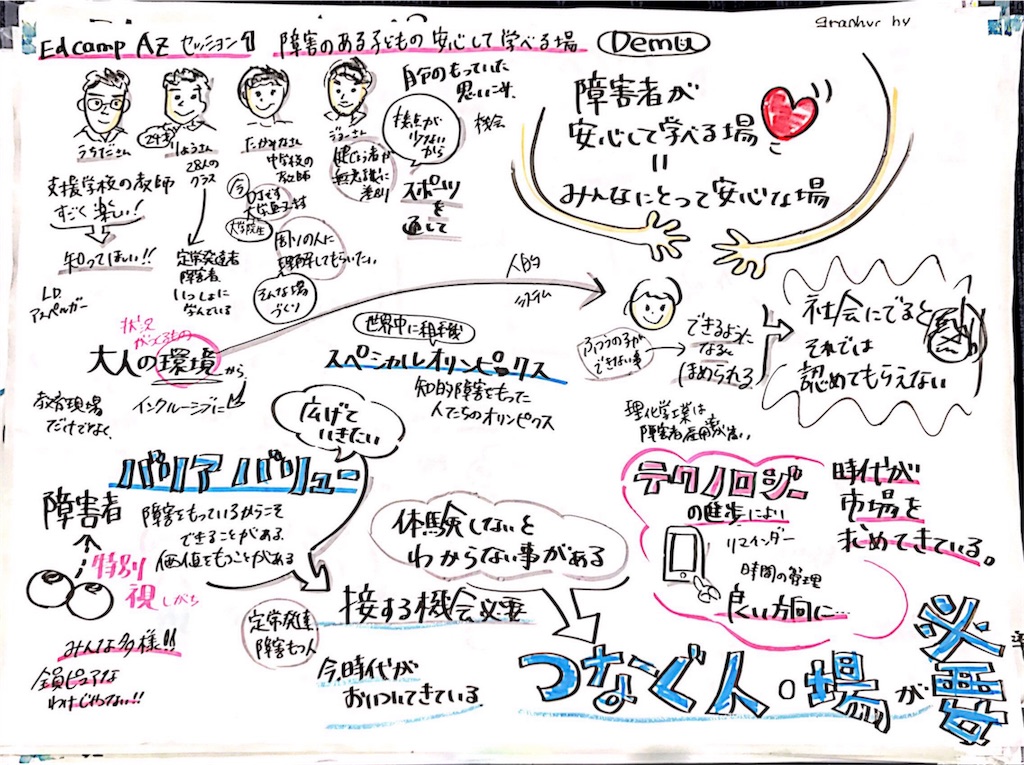 Edcamp AZ セッション1 障害のある子どもの安心して学べる場
Demo
graphic by
うちださん
支援学校の教師
すごく楽しい!
知ってほしい!!
LD.
アスペルガー
24才
りょうさん
28人の
クラス
定常発達者
障害者
いっしょに
学んでいる
中学校の
教師
今
大学院生
周りの人に
理解してもらいたい。
そんな場
づくり
ジョーさん
健じょう者が
無意識に
差別
自分のもっていた
思いこみ
接点が
少ない
から
機会
スポーツ
を
通して
障害者が
安心して学べる場
=
みんなにとって安心な場
状況
がかえるもの
大人の環境から
教育現場
だけでなく、
インクルーシブに
人的
システム
世界中に
スペシャルオリンピックス
知的障害をもった
人たちのオリンピックス
ふつうの子が
できない事
できるように
なると
ほめられる
社会にでると
それでは
認めてもらえない
理化学工業は
広げて
いきたい
バリアバリュー
障害をもっているからこそ
できることがある。
価値をもつことがある
障害者
特別
視しがち
みんな多様!!
全員ピュアな
わけじゃない!!
体験しないと
わからない事がある
接する機会必要
定常発達
障害もつ人
今、時代が
おいついてきている。
テクノロジー
の進歩により
リマインダー
時間の管理
良い方向に…
時代が
市場を
求めてきている。
つなぐ人・場が必要